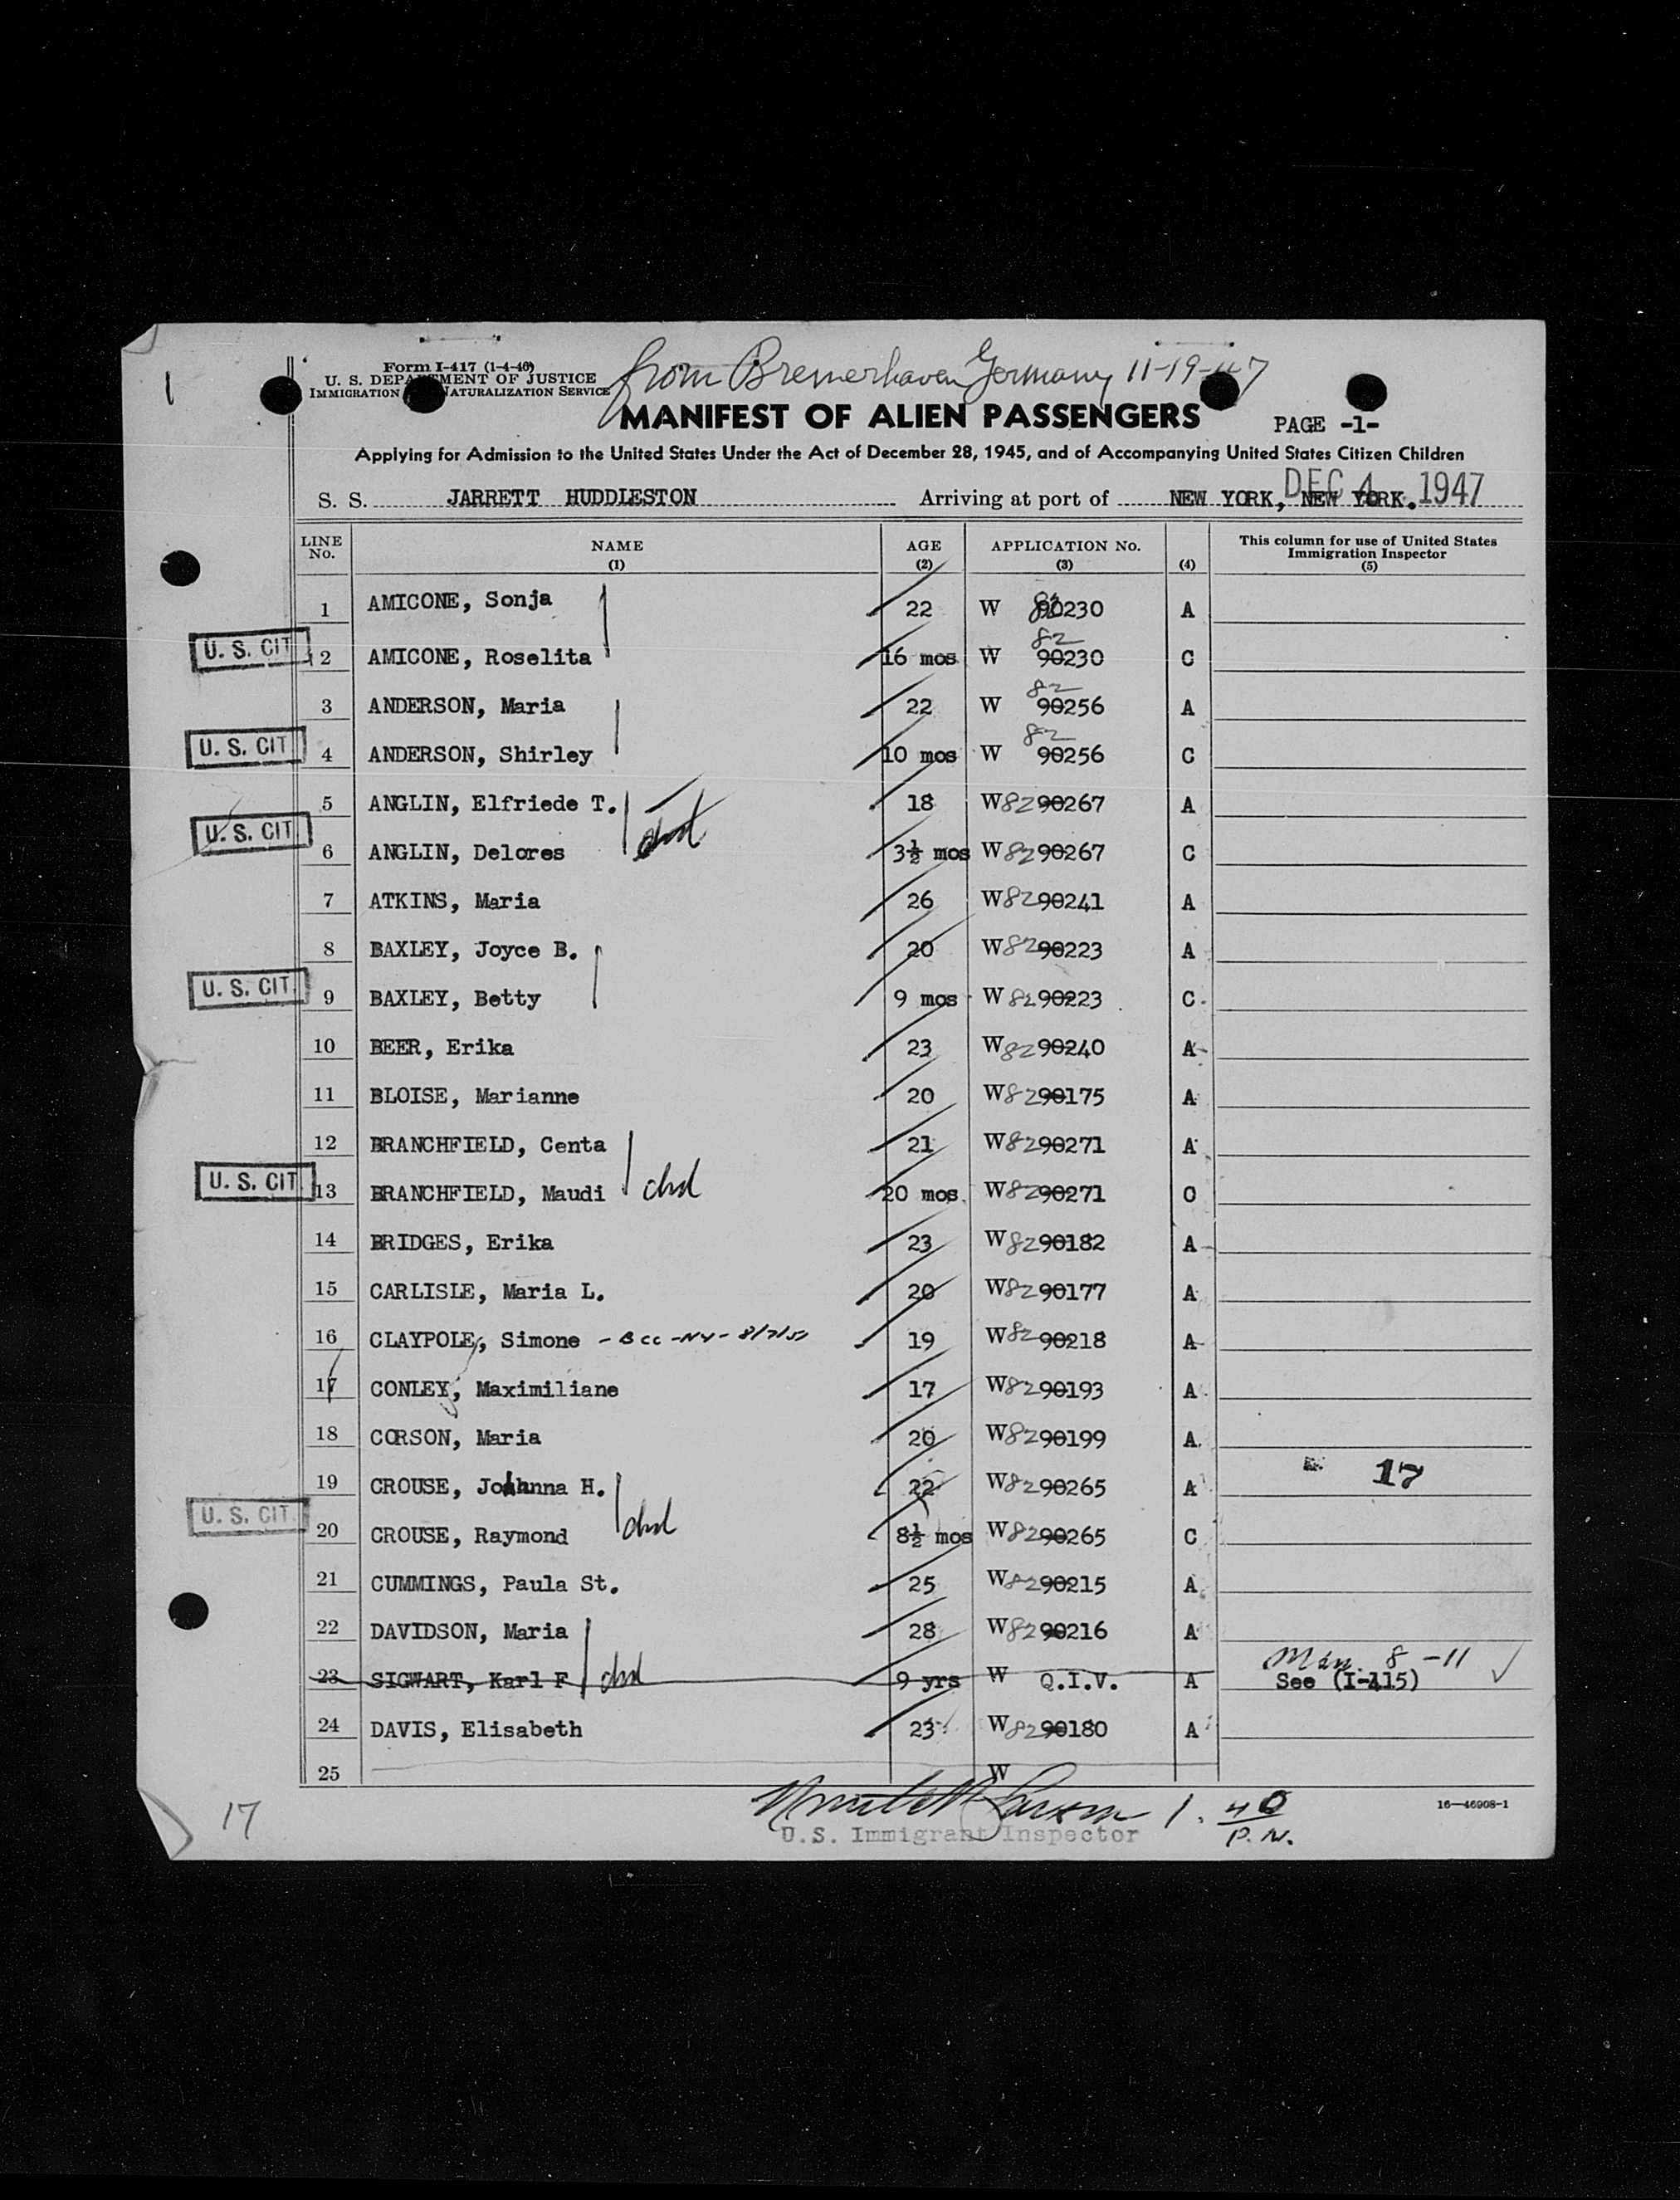 1
Form I-417 (1-4-46)
U. S. DEPARTMENT OF JUSTICE
IMMIGRATION NATURALIZATION SERVICE
from Bremerhaven Germany 11-19-47
MANIFEST OF ALIEN PASSENGERS
PAGE -1-
Applying for Admission to the United States Under the Act of December 28, 1945, and of Accompanying United States Citizen Children
S. S. JARRETT HUDDLESTON Arriving at port of NEW YORK, NEW YORK. DEC 4 1947
LINE No. NAME (1) AGE (2) APPLICATION No. (3) (4) This column for use of United States Immigration Inspector (5)
1 AMICONE, Sonja 22 W 82 90230 A
U. S. CIT. 2 AMICONE, Roselita 16 mos W 82 90230 C
3 ANDERSON, Maria 22 W 82 90256 A
U. S. CIT. 4 ANDERSON, Shirley 10 mos W 82 90256 C
5 ANGLIN, Elfriede T. 18 W 82 90267 A
U. S. CIT. 6 ANGLIN, Delores 3½ mos W 82 90267 C
7 ATKINS, Maria 26 W 82 90241 A
8 BAXLEY, Joyce B. 20 W 82 90223 A
U. S. CIT. 9 BAXLEY, Betty 9 mos W 82 90223 C
10 BEER, Erika 23 W 82 90240 A
11 BLOISE, Marianne 20 W 82 90175 A
12 BRANCHFIELD, Centa 21 W 82 90271 A
U. S. CIT. 13 BRANCHFIELD, Maudi 20 mos W 82 90271 C
14 BRIDGES, Erika 23 W 82 90182 A
15 CARLISLE, Maria L. 20 W 82 90177 A
16 CLAYPOLE, Simone 19 W 82 90218 A
17 CONLEY, Maximiliane 17 W 82 90193 A
18 CORSON, Maria 20 W 82 90199 A
19 CROUSE, Johanna H. 22 W 82 90265 A 17
U. S. CIT. 20 CROUSE, Raymond 8½ mos W 82 90265 C
21 CUMMINGS, Paula St. 25 W 82 90215 A
22 DAVIDSON, Maria 28 W 82 90216 A
23 SIGWART, Karl F 9 yrs W Q.I.V. A Man. 8 -11 See (I-415)
24 DAVIS, Elisabeth 23 W 82 90180 A
25 W
17
U.S. Immigrant Inspector
16—46908-1